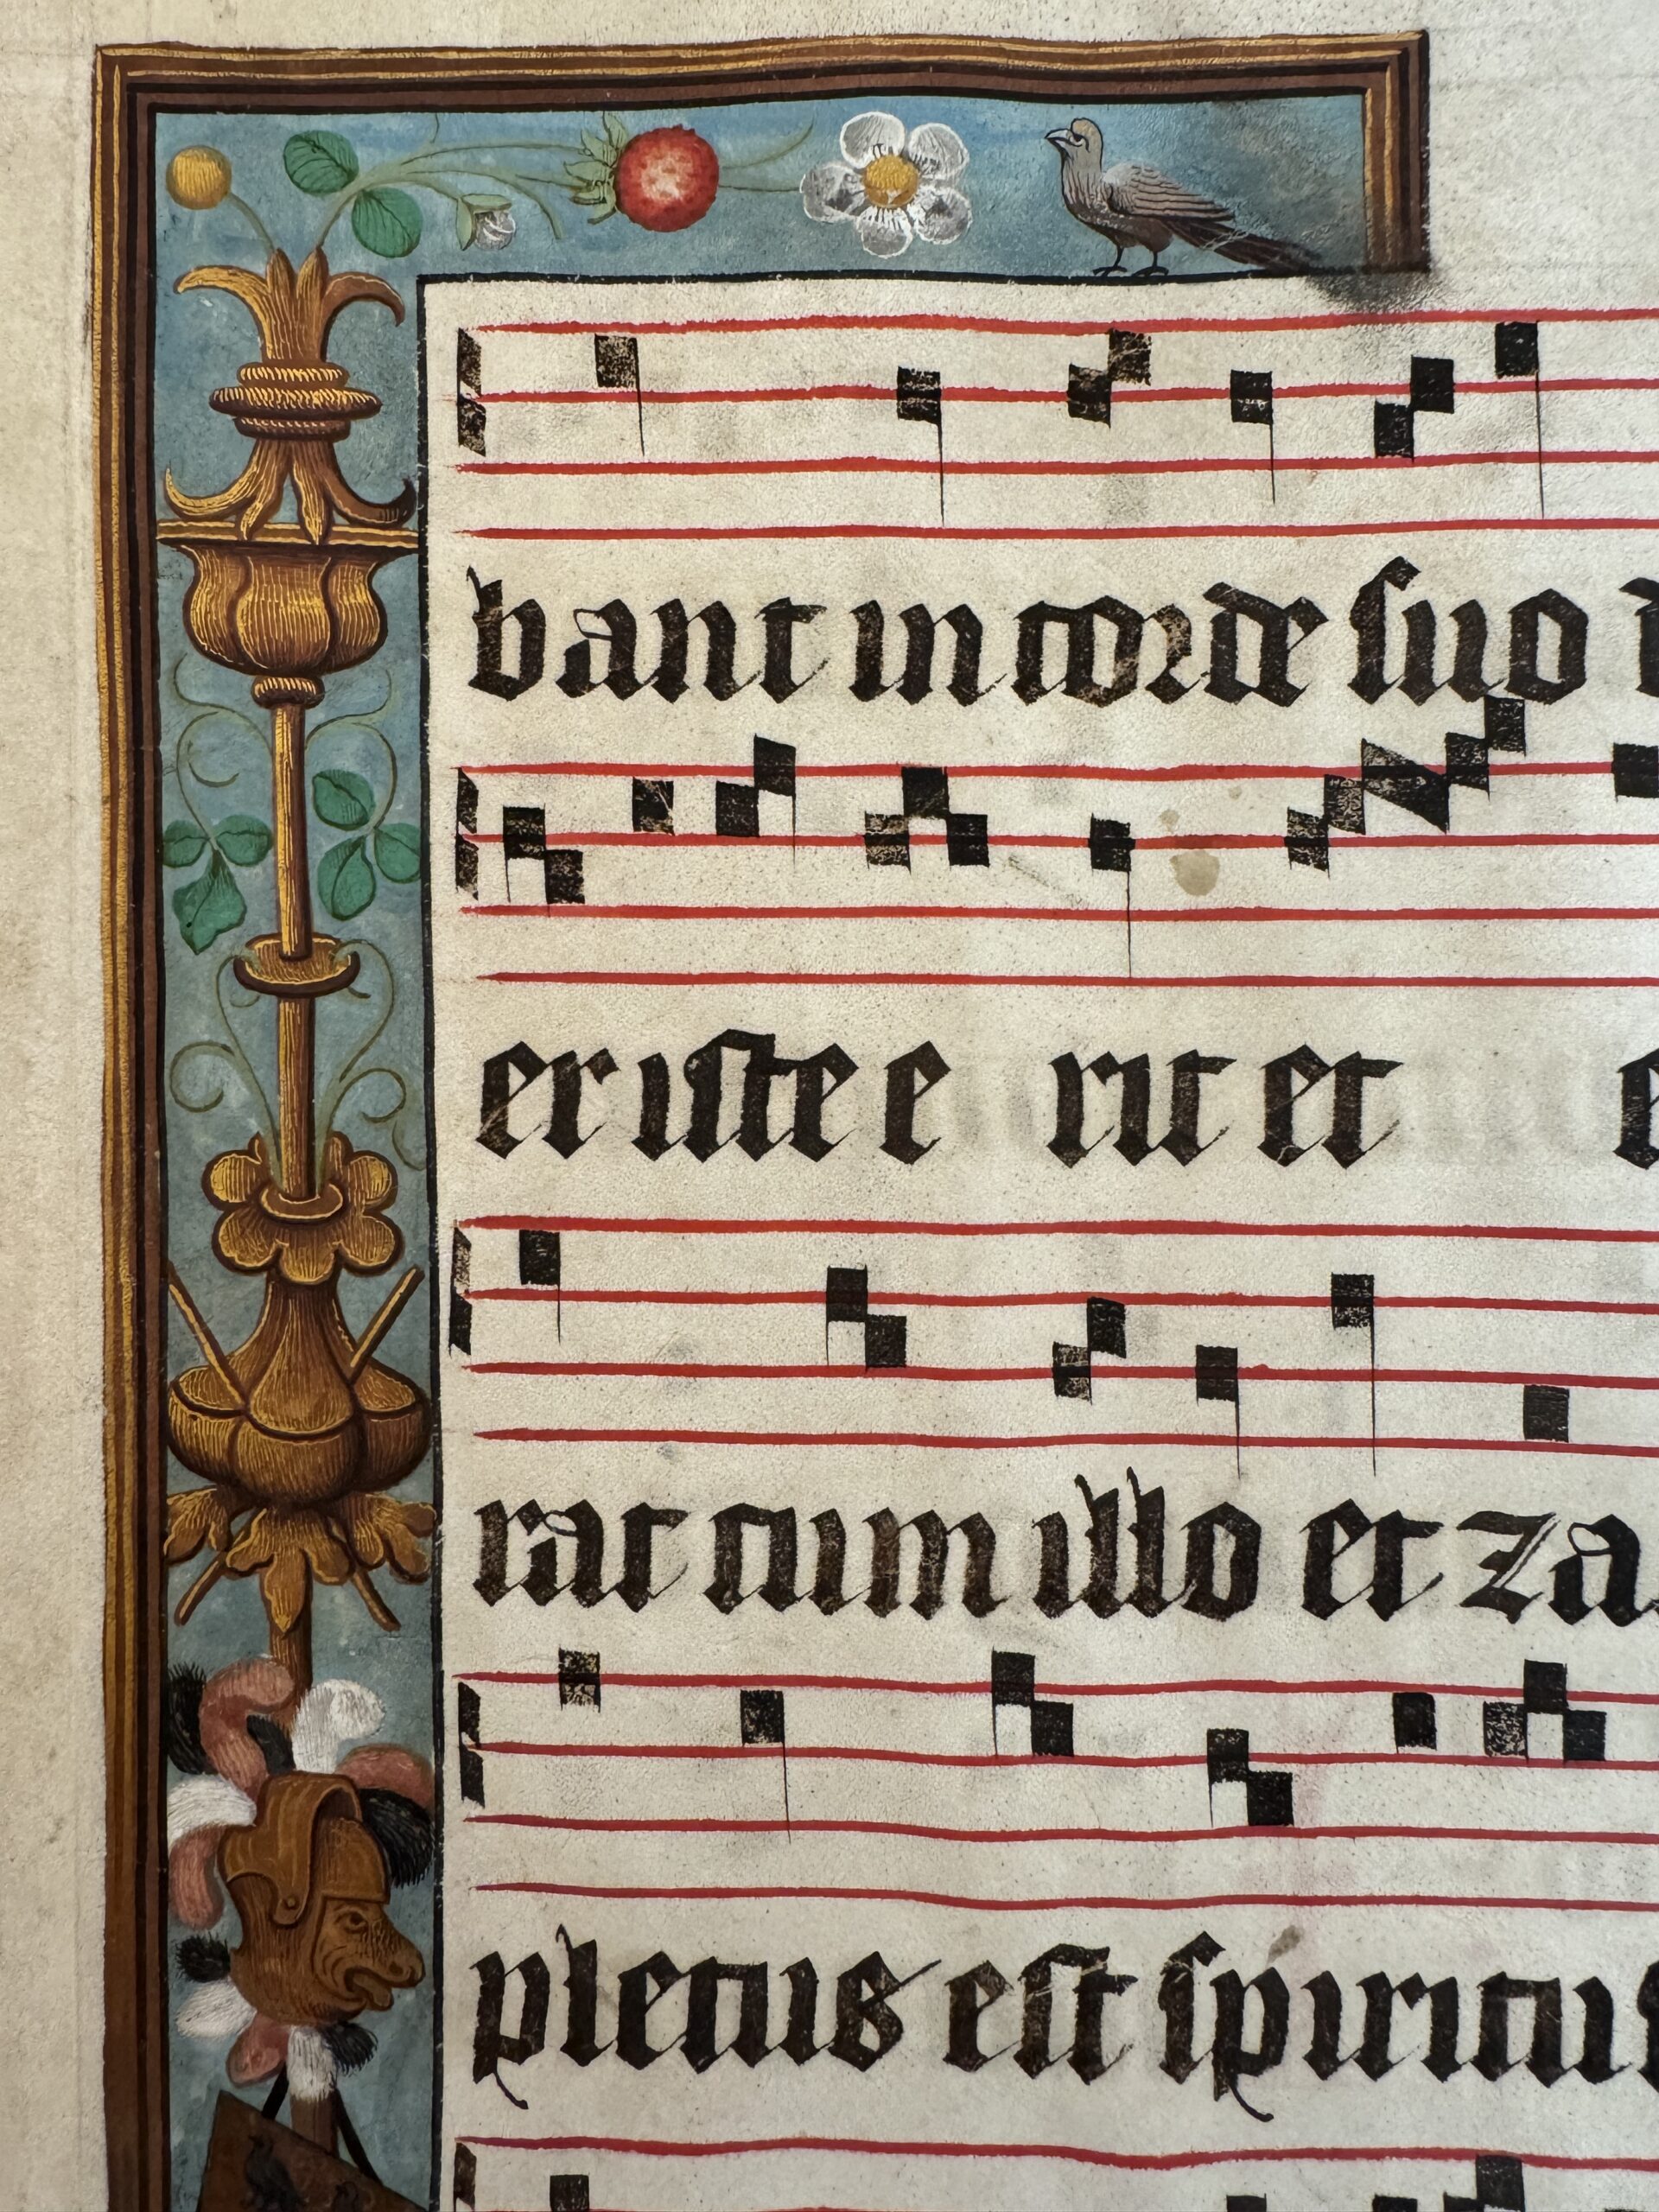 bant in corde suo
er iste e rit et
rat cum illo et za
pletus est spiritus